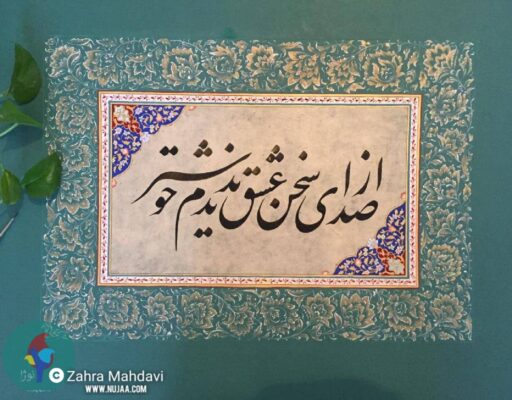 از صدای سخن عشق ندیدم خوشتر
نوژا
© Zahra Mahdavi
WWW.NUJAA.COM